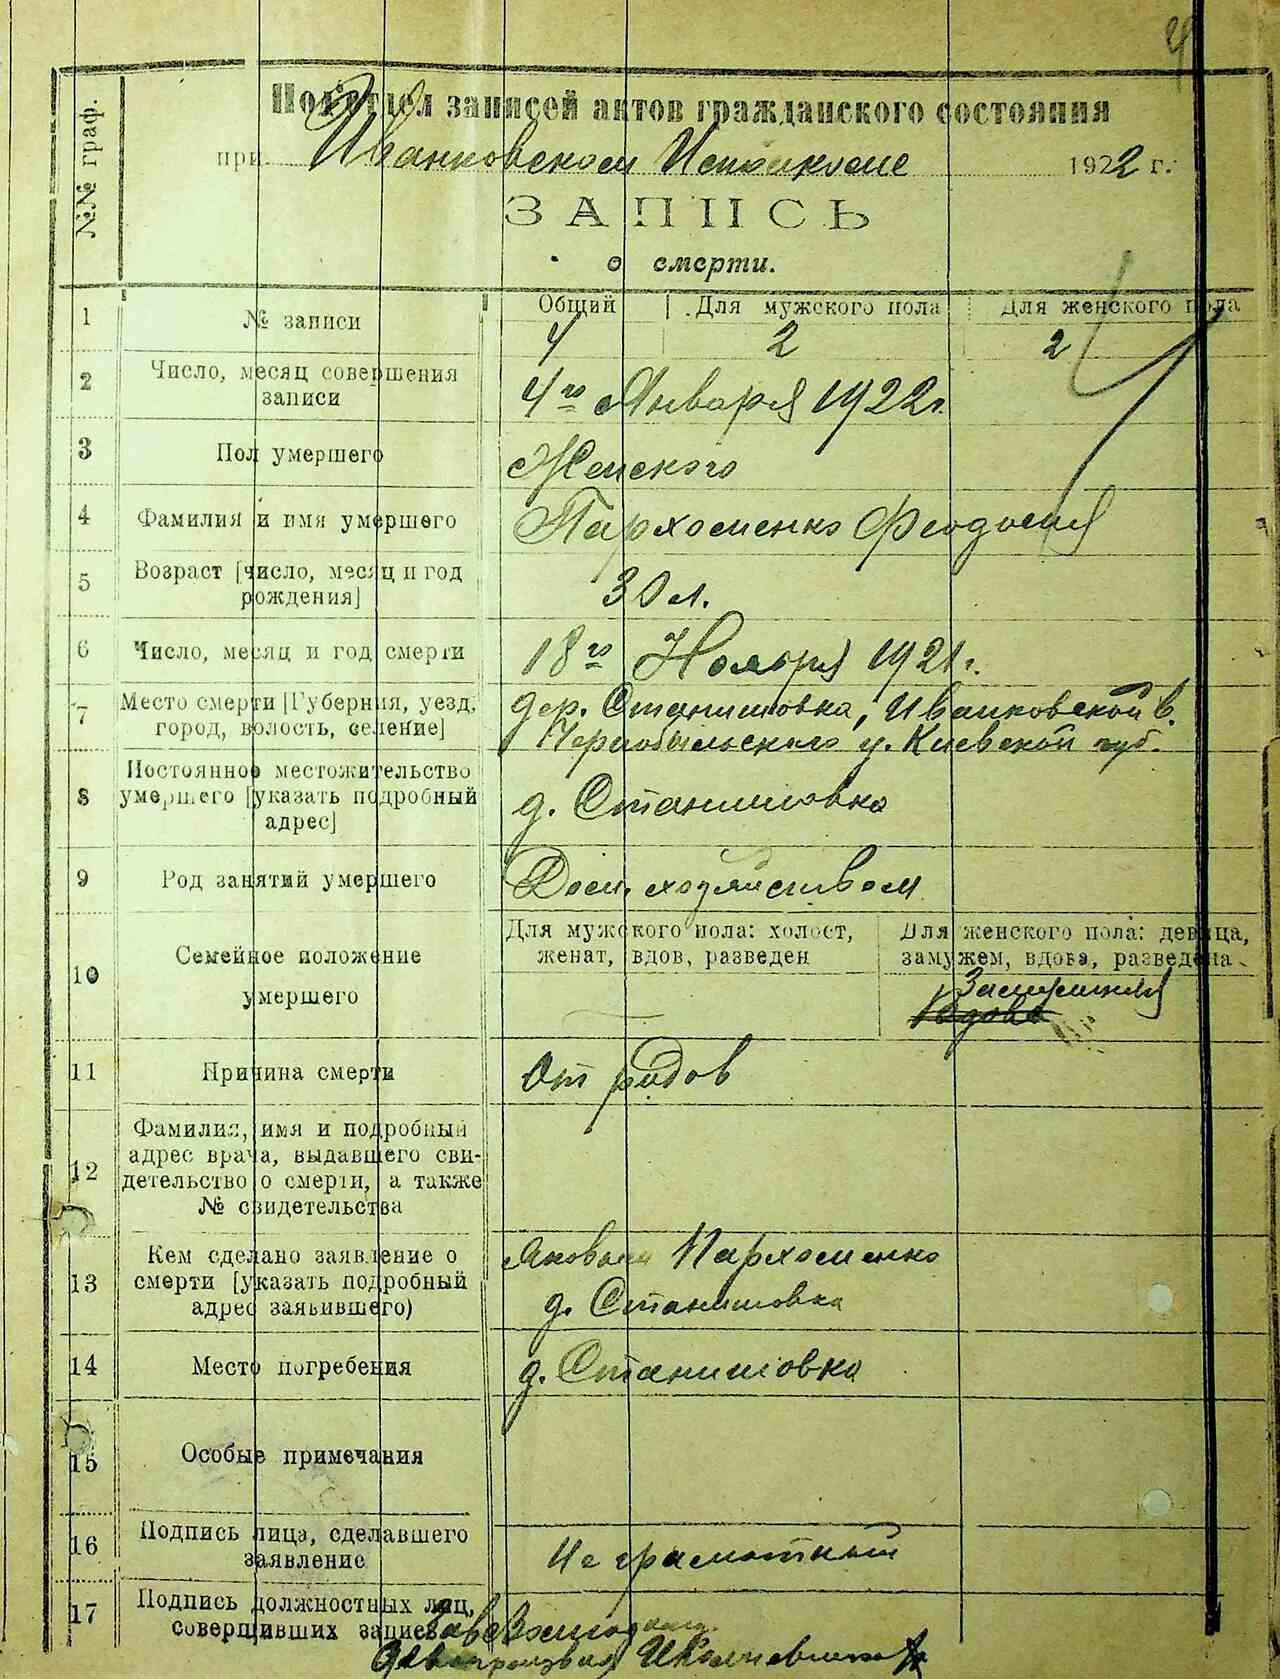 №№ граф.
Подотдел записей актов гражданского состояния
при Иванковском Исполкоме 1922 г.
ЗАПИСЬ
о смерти.
1 № записи Общий Для мужского пола Для женского пола
4 2 2
2 Число, месяц совершения
записи
4го Января 1922г.
3 Пол умершего Женского
4 Фамилия и имя умершего Пархоменко Феодосия
5 Возраст [число, месяц и год
рождения]
30 л.
6 Число, месяц и год смерти 18го Ноября 1921г.
7 Место смерти [Губерния, уезд,
город, волость, селение]
дер. Станишовка, Иванковской в.
Чернобыльского у. Киевской губ.
8 Постоянное местожительство
умершего [указать подробный
адрес]
д. Станишовка
9 Род занятий умершего Дом. хозяйством
10 Семейное положение
умершего
Для мужского пола: холост,
женат, вдов, разведен
Для женского пола: девица,
замужем, вдова, разведена
Замужняя
Вдова
11 Причина смерти От родов
12 Фамилия, имя и подробный
адрес врача, выдавшего сви-
детельство о смерти, а также
№ свидетельства
13 Кем сделано заявление о
смерти [указать подробный
адрес заявившего)
Пархоменко
д. Станишовка
14 Место погребения д. Станишовка
15 Особые примечания
16 Подпись лица, сделавшего
заявление
Не грамотный
17 Подпись должностных лиц,
совершивших запись